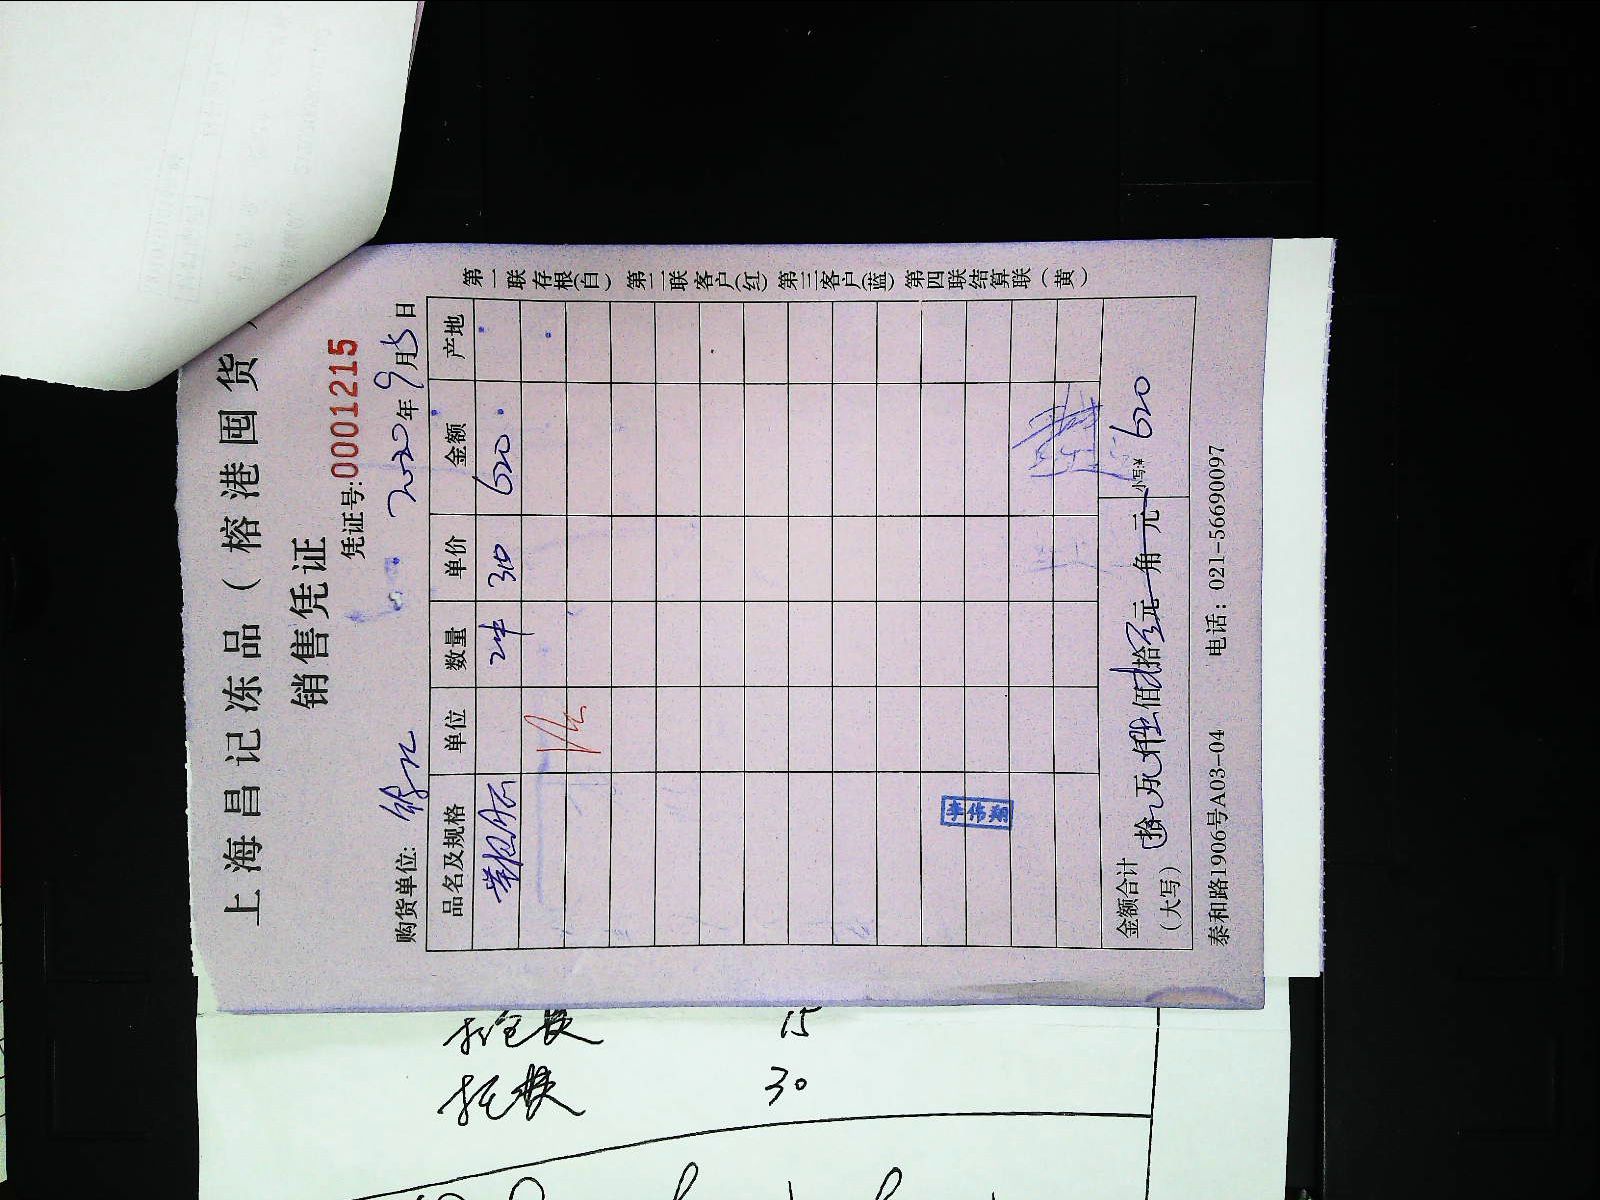 上海昌记冻品（榕港囤货
销售凭证
凭证号:0001215
购货单位: 2020年9月5日
品名及规格 单位 数量 单价 金额 产地
2件 310 620
李伟翔
金额合计（大写） 拾 万 仟 佰 拾 元 角 元 小写:¥ 620
泰和路1906号A03-04 电话：021-56690097
第一联存根(白) 第二联客户(红) 第三客户(蓝) 第四联结算联（黄）
15
30